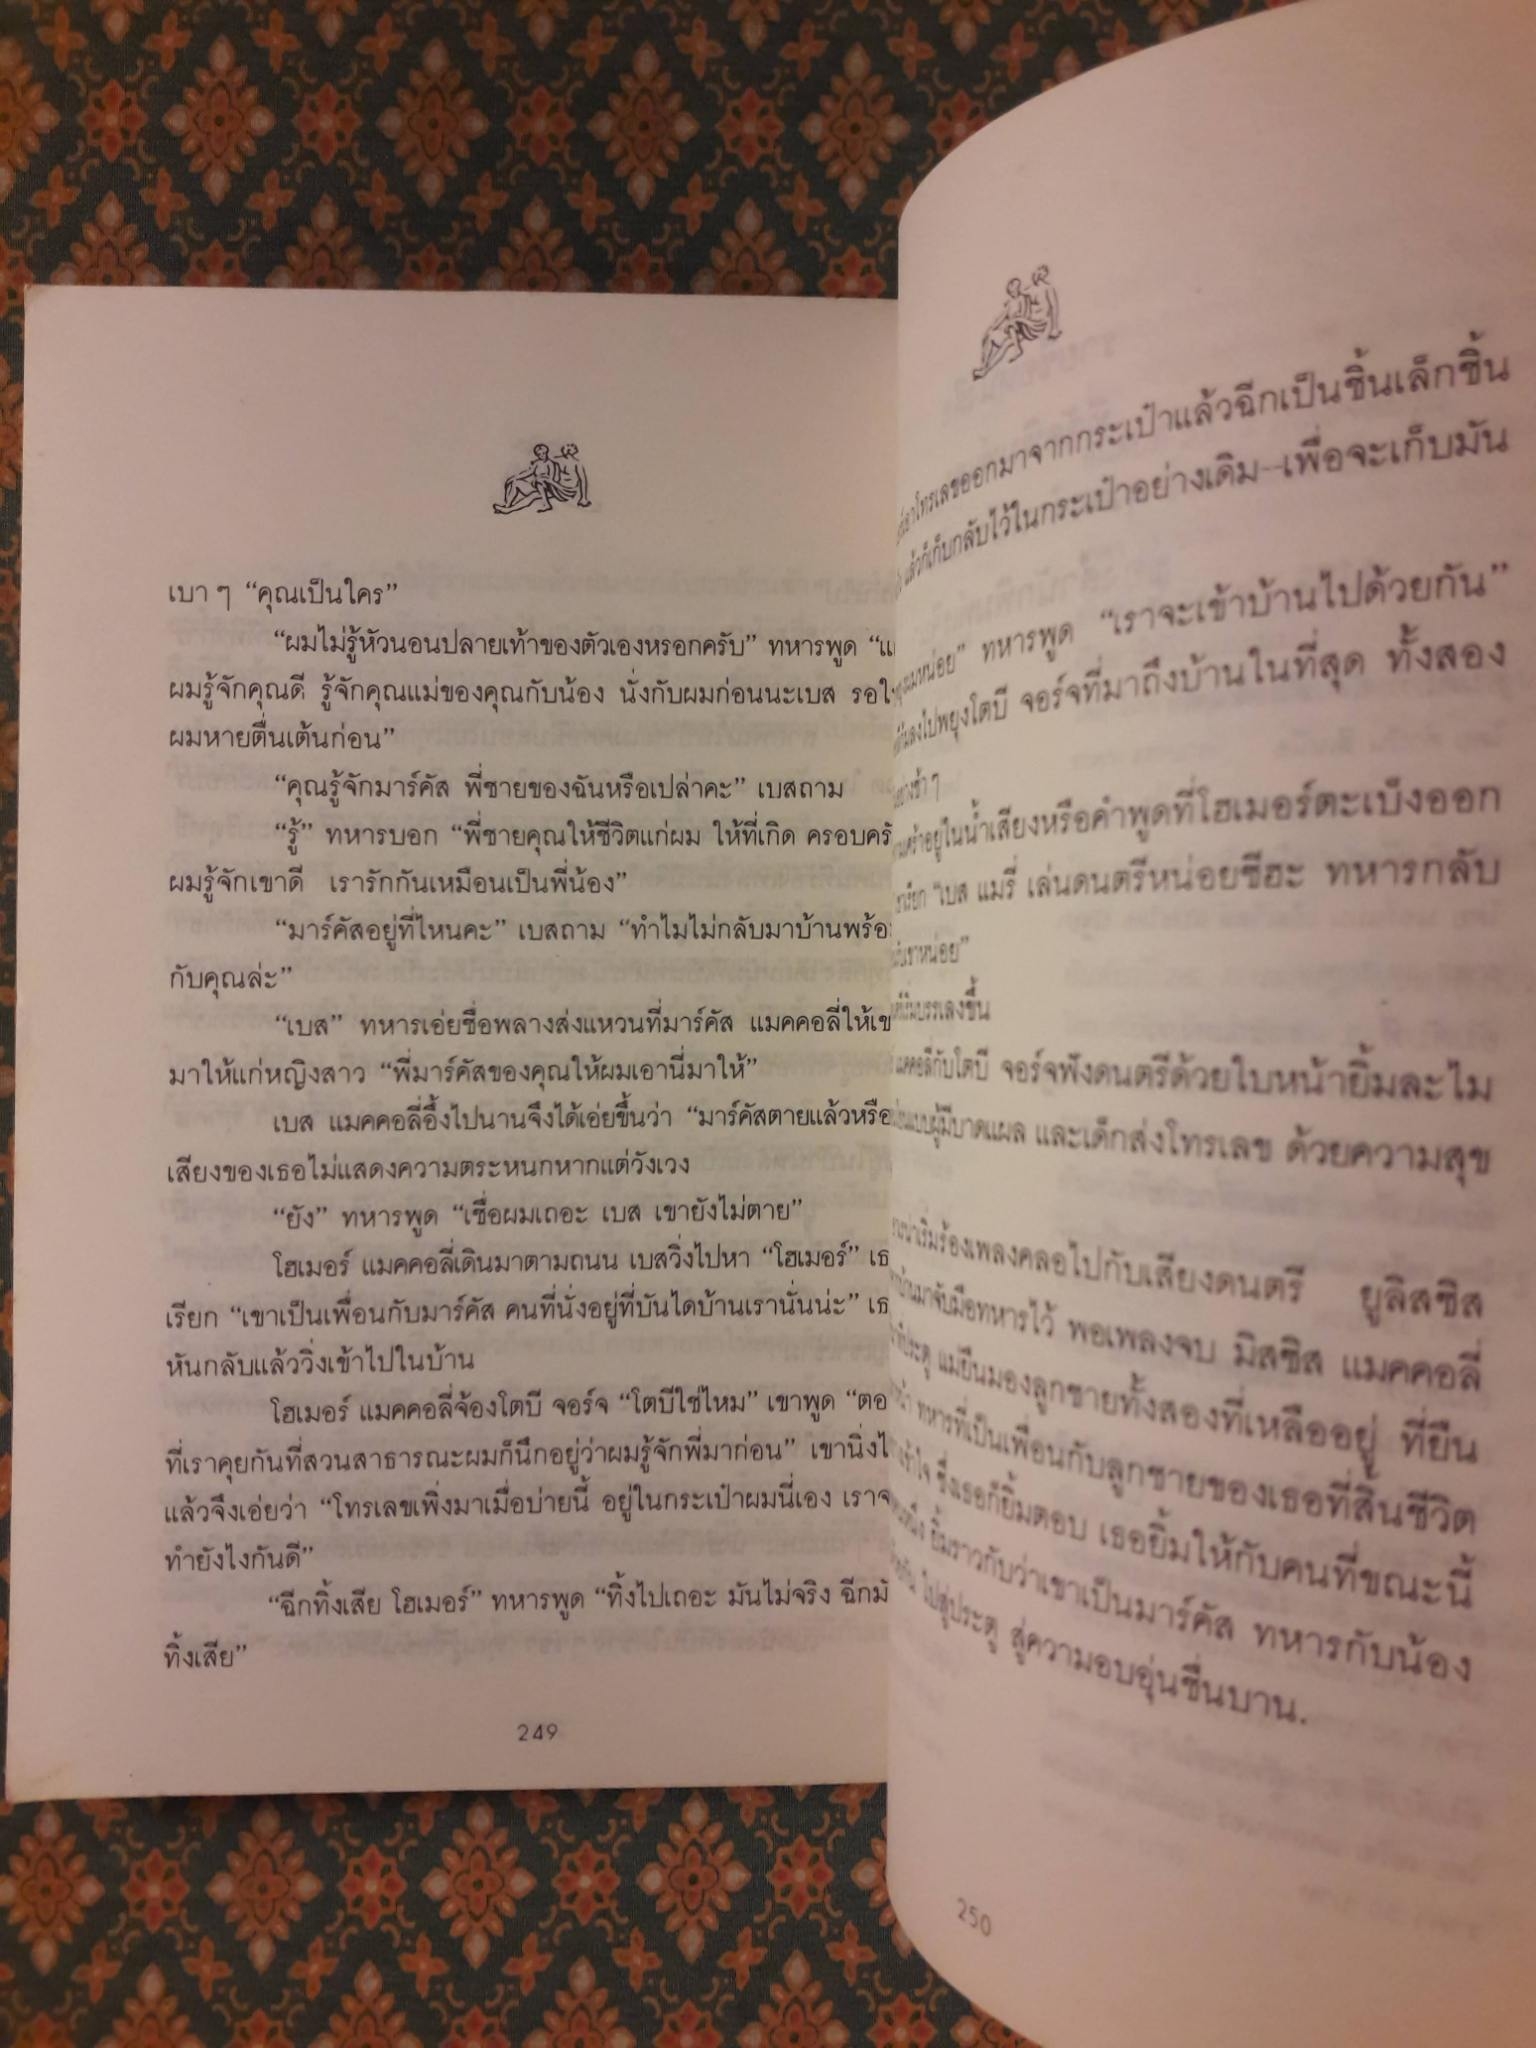 เบา ๆ “คุณเป็นใคร”
“ผมไม่รู้หัวนอนปลายเท้าของตัวเองหรอกครับ” ทหารพูด
ผมรู้จักคุณดี รู้จักคุณแม่ของคุณกับน้อง นั่งกับผมก่อนนะเบส
ผมหายตื่นเต้นก่อน”
“คุณรู้จักมาร์คัส พี่ชายของฉันหรือเปล่าคะ” เบสถาม
“รู้” ทหารบอก “พี่ชายคุณให้ชีวิตแก่ผม ให้ที่เกิด
ผมรู้จักเขาดี เรารักกันเหมือนเป็นพี่น้อง”
“มาร์คัสอยู่ที่ไหนคะ” เบสถาม “ทำไมไม่กลับมาบ้าน
กับคุณล่ะ”
“เบส” ทหารเอ่ยชื่อพลางส่งแหวนที่มาร์คัส แมคคอลี่ให้
มาให้แก่หญิงสาว “พี่มาร์คัสของคุณให้ผมเอานี่มาให้”
เบส แมคคอลี่อึ้งไปนานจึงได้เอ่ยขึ้นว่า “มาร์คัสตายแล้วหรือ
เสียงของเธอไม่แสดงความตระหนกหากแต่วังเวง
“ยัง” ทหารพูด “เชื่อผมเถอะ เบส เขายังไม่ตาย”
โฮเมอร์ แมคคอลี่เดินมาตามถนน เบสวิ่งไปหา “โฮเมอร์”
เรียก “เขาเป็นเพื่อนกับมาร์คัส คนที่นั่งอยู่ที่บันไดบ้านเรานั่นน่ะ”
หันกลับแล้ววิ่งเข้าไปในบ้าน
โฮเมอร์ แมคคอลี่จ้องโตบี จอร์จ “โตบีใช่ไหม” เขาพูด
ที่เราคุยกันที่สวนสาธารณะผมก็นึกอยู่ว่าผมรู้จักพี่มาก่อน” เขานิ่ง
แล้วจึงเอ่ยว่า “โทรเลขเพิ่งมาเมื่อบ่ายนี้ อยู่ในกระเป๋าผมนี่เอง
ทำยังไงกันดี”
“ฉีกทิ้งเสีย โฮเมอร์” ทหารพูด “ทิ้งไปเถอะ มันไม่จริง
ทิ้งเสีย”
249
โทรเลขออกมาจากกระเป๋าแล้วฉีกเป็นชิ้นเล็กชิ้น
แล้วก็เก็บกลับไว้ในกระเป๋าอย่างเดิม–เพื่อจะเก็บมัน
ทหารพูด “เราจะเข้าบ้านไปด้วยกัน”
ลงไปพยุงโตบี จอร์จที่มาถึงบ้านในที่สุด ทั้งสอง
อย่างช้า ๆ
อยู่ในน้ำเสียงหรือคำพูดที่โฮเมอร์ตะเบ็งออก
“เบส แมรี่ เล่นดนตรีหน่อยซีฮะ ทหารกลับ
บรรเลงขึ้น
แมคคอลี่กับโตบี จอร์จฟังดนตรีด้วยใบหน้ายิ้มละไม
ผู้มีบาดแผล และเด็กส่งโทรเลข ด้วยความสุข
เริ่มร้องเพลงคลอไปกับเสียงดนตรี ยูลิสซิส
มาจับมือทหารไว้ พอเพลงจบ มิสซิส แมคคอลี่
ประตู แม่ยืนมองลูกชายทั้งสองที่เหลืออยู่ ที่ยืน
ทหารที่เป็นเพื่อนกับลูกชายของเธอที่สิ้นชีวิต
ซึ่งเธอก็ยิ้มตอบ เธอยิ้มให้กับคนที่ขณะนี้
ยิ้มราวกับว่าเขาเป็นมาร์คัส ทหารกับน้อง
ไปสู่ประตู สู่ความอบอุ่นชื่นบาน.
250